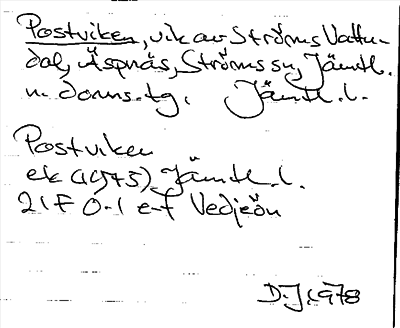 Postviken, vik av Ströms Vattu-
dal, Äspnäs, Ströms sn, Jämtl.
n. doms.tg, Jämtl. l.
Postviken
ek (1975) Jämtl. l.
21F 0-1 e-f Vedjeön
D.J 1978